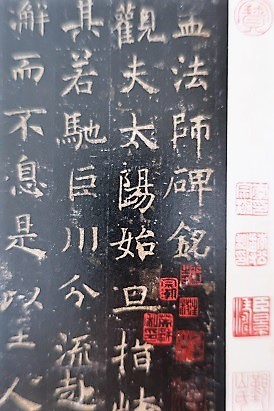 法師碑銘
觀夫太陽始旦指
其若馳巨川分流赴
澥而不息是以至人